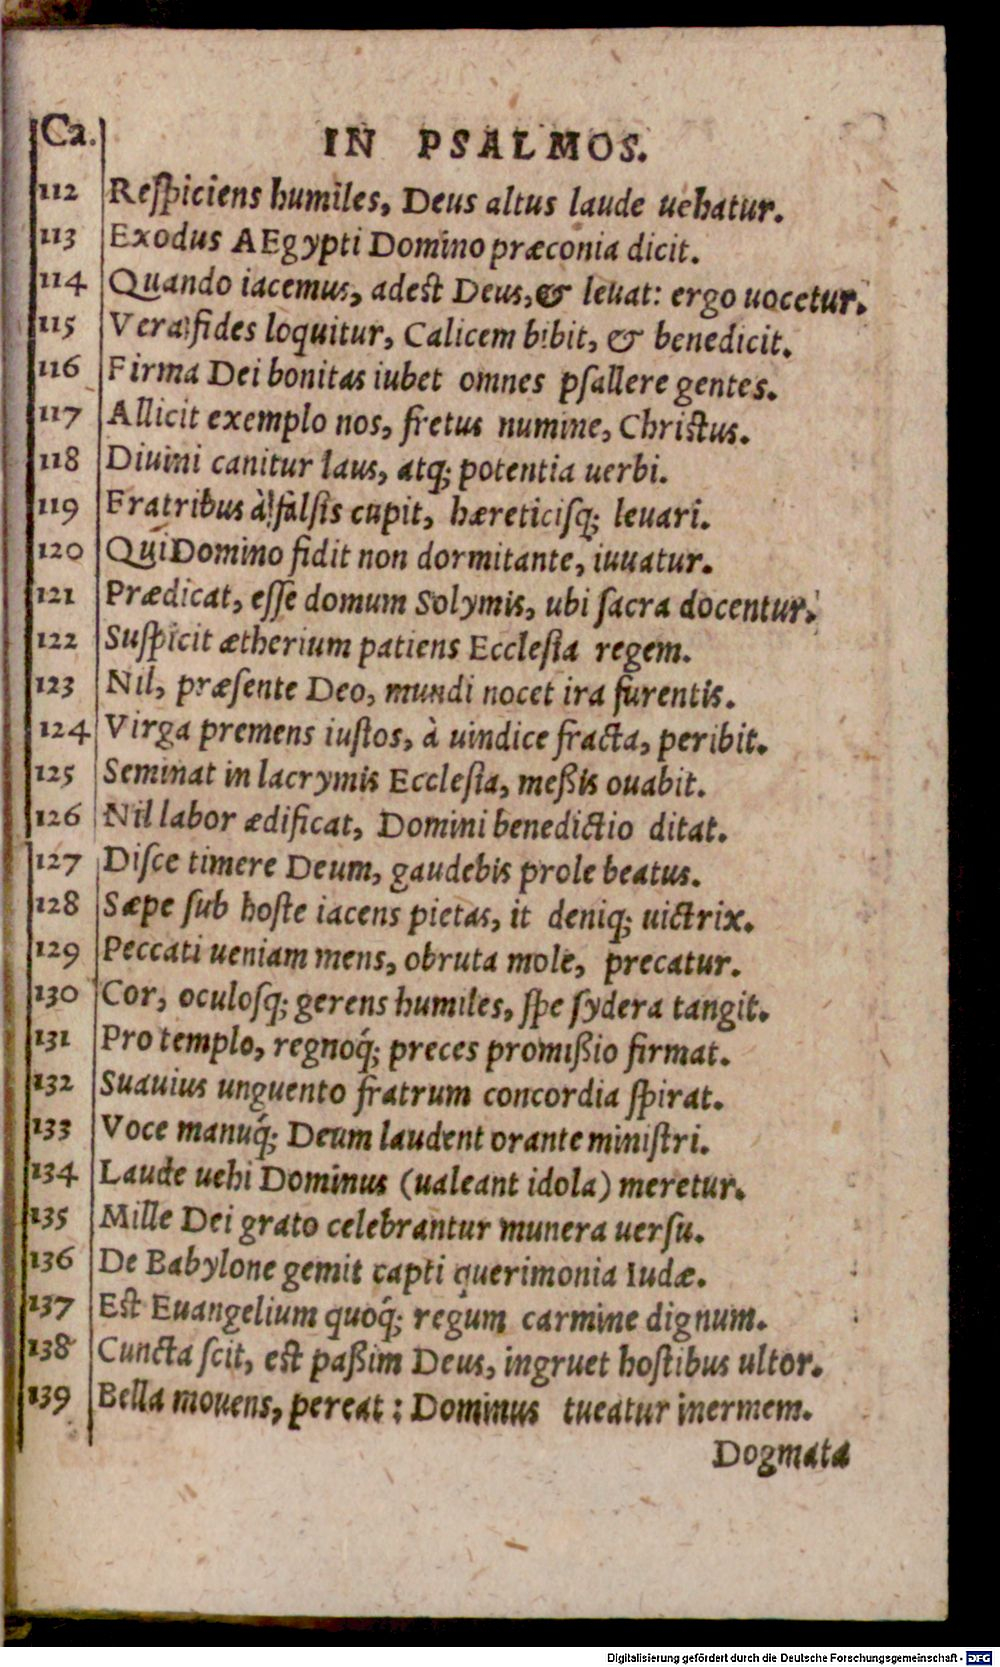 Ca. IN PSALMOS.
112 Reſpiciens humiles, Deus altus laude uehatur.
113 Exodus AEgypti Domino præconia dicit.
114 Quando iacemus, adest Deus, & leuat: ergo uocetur.
115 Vera fides loquitur, Calicem bibit, & benedicit.
116 Firma Dei bonitas iubet omnes pſallere gentes.
117 Allicit exemplo nos, fretus numine, Christus.
118 Diuini canitur laus, atq; potentia uerbi.
119 Fratribus à falſis cupit, hæreticiſq; leuari.
120 Qui Domino fidit non dormitante, iuuatur.
121 Prædicat, eſſe domum Solymis, ubi ſacra docentur.
122 Suſpicit ætherium patiens Eccleſia regem.
123 Nil, præſente Deo, mundi nocet ira furentis.
124 Virga premens iuſtos, à uindice fracta, peribit.
125 Seminat in lacrymis Eccleſia, meßis ouabit.
126 Nil labor ædificat, Domini benedictio ditat.
127 Diſce timere Deum, gaudebis prole beatus.
128 Sæpe ſub hoſte iacens pietas, it deniq; uictrix.
129 Peccati ueniam mens, obruta mole, precatur.
130 Cor, oculoſq; gerens humiles, ſpe ſydera tangit.
131 Pro templo, regnoq́; preces promißio firmat.
132 Suauius unguento fratrum concordia ſpirat.
133 Voce manuq́; Deum laudent orante miniſtri.
134 Laude uehi Dominus (ualeant idola) meretur.
135 Mille Dei grato celebrantur munera uerſu.
136 De Babylone gemit capti querimonia Iudæ.
137 Est Euangelium quoq́; regum carmine dignum.
138 Cuncta ſcit, est paßim Deus, ingruet hoſtibus ultor.
139 Bella mouens, pereat: Dominus tueatur inermem.
Dogmata
Digitalisierung gefördert durch die Deutsche Forschungsgemeinschaft - DFG